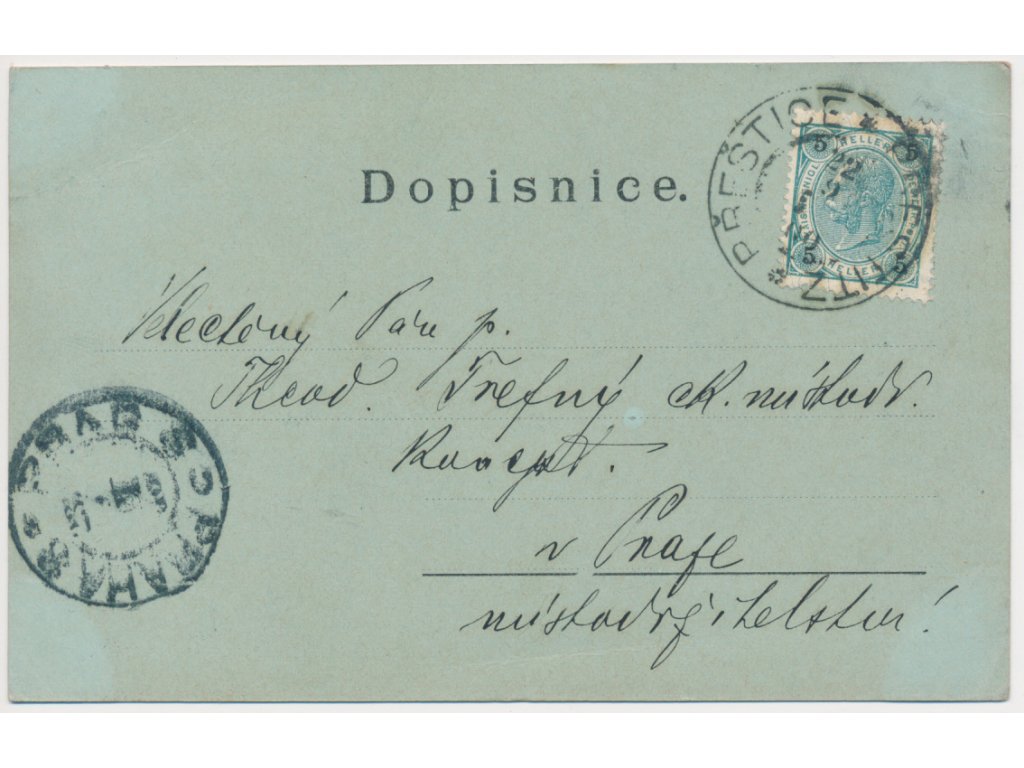 Dopisnice.
PŘEŠTICE
5 HELLER 5
Velectěný Pán p.
Theod. Trefný ck. místodr.
Koncept.
v Praze
místodržitelství!
PRAG PRAHA